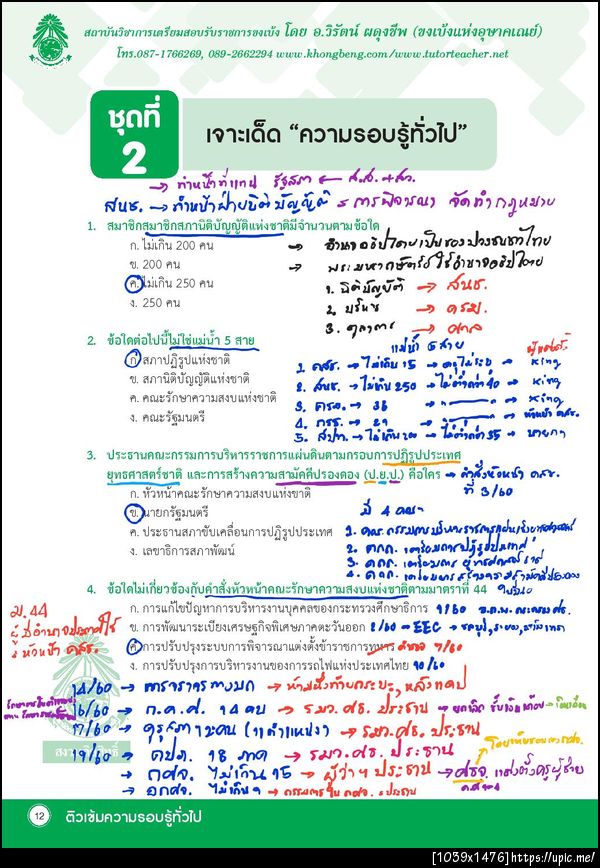 สถาบันวิชาการเตรียมสอบรับราชการขงเบ้ง โดย อ.วิรัตน์ ผดุงชีพ (ขงเบ้งแห่งอุษาคเณย์)
โทร.087-1766269, 089-2662294 www.khongbeng.com/www.tutorteacher.net
ชุดที่ 2
เจาะเด็ด “ความรอบรู้ทั่วไป”
→ ทำหน้าที่แทน รัฐสภา ← ส.ส. + สว.
สนช. → ทำหน้าฝ่ายนิติบัญญัติ = การพิจารณา จัดทำกฎหมาย
1. สมาชิกสมาชิกสภานิติบัญญัติแห่งชาติมีจำนวนตามข้อใด
ก. ไม่เกิน 200 คน
ข. 200 คน
ค. ไม่เกิน 250 คน
ง. 250 คน
→ อำนาจอธิปไตยเป็นของปวงชนชาวไทย
→ พระมหากษัตริย์ใช้อำนาจอธิปไตย
1. นิติบัญญัติ → สนช.
2. บริหาร → ครม.
3. ตุลาการ → ศาล
2. ข้อใดต่อไปนี้ไม่ใช่แม่น้ำ 5 สาย
ก. สภาปฏิรูปแห่งชาติ
ข. สภานิติบัญญัติแห่งชาติ
ค. คณะรักษาความสงบแห่งชาติ
ง. คณะรัฐมนตรี
แม่น้ำ 5 สาย
1. คสช. → ไม่เกิน 15 → → King
2. สนช. → ไม่เกิน 250 → ไม่ต่ำกว่า 40 → King
3. ครม. → 36 → → King
4. → 21 → → หัวหน้า คสช.
5. สปท. → ไม่เกิน 200 → ไม่ต่ำกว่า 35 → นายกฯ
3. ประธานคณะกรรมการบริหารราชการแผ่นดินตามกรอบการปฏิรูปประเทศ
ยุทธศาสตร์ชาติ และการสร้างความสามัคคีปรองดอง (ป.ย.ป.) คือใคร → คำสั่งหัวหน้า คสช.
ที่ 3/60
ก. หัวหน้าคณะรักษาความสงบแห่งชาติ
ข. นายกรัฐมนตรี
ค. ประธานสภาขับเคลื่อนการปฏิรูปประเทศ
ง. เลขาธิการสภาพัฒน์
มี 4 คณะ
4. ข้อใดไม่เกี่ยวข้องกับคำสั่งหัวหน้าคณะรักษาความสงบแห่งชาติตามมาตราที่ 44
ก. การแก้ไขปัญหาการบริหารงานบุคคลของกระทรวงศึกษาธิการ 1/60
ข. การพัฒนาระเบียงเศรษฐกิจพิเศษภาคตะวันออก 2/60 → EEC → ชลบุรี, ระยอง, ฉะเชิงเทรา
ค. การปรับปรุงระบบการพิจารณาแต่งตั้งข้าราชการทหาร ตำรวจ 7/60
ง. การปรับปรุงการบริหารงานของการรถไฟแห่งประเทศไทย 10/60
ม.44
หัวหน้า คสช.
14/60 → การจราจรทางบก → ห้ามนั่งท้ายกระบะ, หลังแคป
16/60 → ก.ค.ศ. 14 คน → รมว.ศธ. ประธาน
17/60 → คุรุสภา → รมว.ศธ. ประธาน
19/60 → คปภ. 18 ภาค → รมว.ศธ. ประธาน
→ กศจ. ไม่เกิน 15 → ผู้ว่าฯ ประธาน → ศธจ.
→ อกศจ. ไม่เกิน 9 → กรรมการใน กศจ. ประธาน
12 ติวเข้มความรอบรู้ทั่วไป
[1039x1476] https://upic.me/